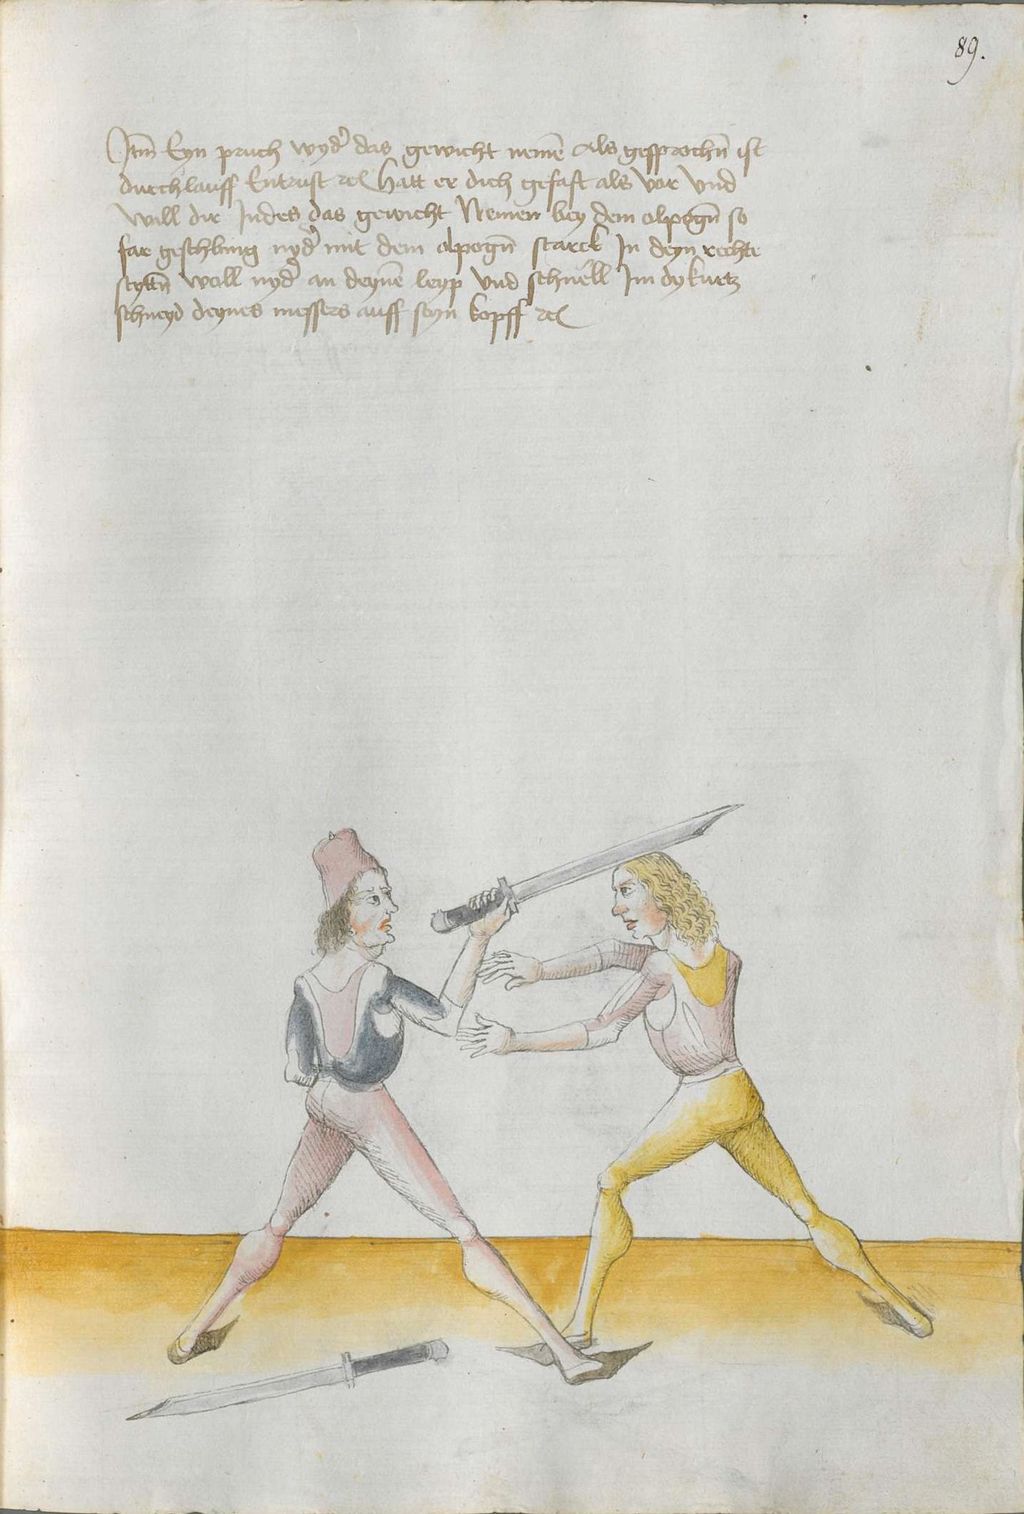 89.
Itm̄ Eyn pruch wyd' das gewicht nemē Als gesprochn̄ ist
durchlauff Entrust rc Hatt er dich gefast als vor vnd
will dir Indes das gewicht Nemen bey dem elpogn̄ so
far geschbung nyd' mit dem elpogn̄ starck In deyn rechte
seyttn̄ woll nyd' an deynē leyp vnd schnell Im dy kurtz
schneyd deynes messers auff seyn kopff rc